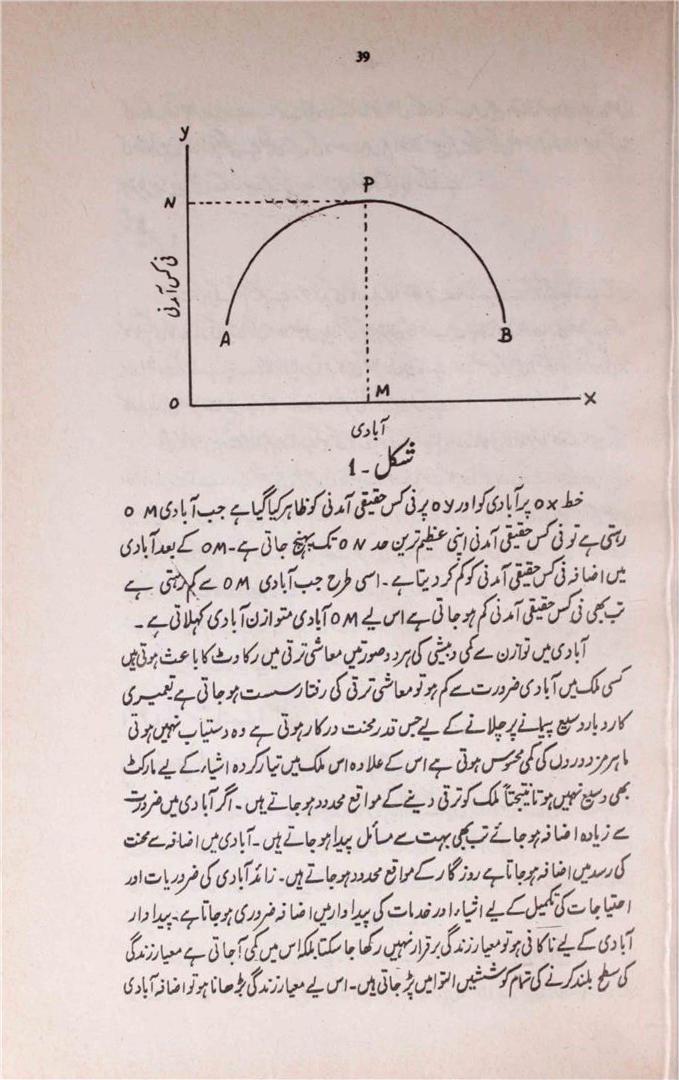 39
y
P
N
فی کس آمدنی
A
B
O
M
X
آبادی
شکل - 1
خط OX پر آبادی کو اور OY پر فی کس حقیقی آمدنی کو ظاہر کیا گیا ہے جب آبادی OM
رہتی ہے تو فی کس حقیقی آمدنی اپنی عظیم ترین حد ON تک پہنچ جاتی ہے۔ OM کے بعد آبادی
میں اضافہ فی کس حقیقی آمدنی کو کم کر دیتا ہے۔ اسی طرح جب آبادی OM سے کم رہتی ہے
تب بھی فی کس حقیقی آمدنی کم ہو جاتی ہے اس لیے OM آبادی متوازن آبادی کہلاتی ہے۔
آبادی میں توازن سے کمی و بیشی کی ہر دو صورتیں معاشی ترقی میں رکاوٹ کا باعث ہوتی ہیں
کسی ملک میں آبادی ضرورت سے کم ہو تو معاشی ترقی کی رفتار سست ہو جاتی ہے تعمیری
کاروبار وسیع پیمانے پر چلانے کے لیے جس قدر محنت درکار ہوتی ہے وہ دستیاب نہیں ہوتی
ماہر مزدوروں کی کمی محسوس ہوتی ہے اس کے علاوہ اس ملک میں تیار کردہ اشیاء کے لیے مارکٹ
بھی وسیع نہیں ہوتا نتیجتاً ملک کو ترقی دینے کے مواقع محدود ہو جاتے ہیں۔ اگر آبادی میں ضرورت
سے زیادہ اضافہ ہو جائے تب بھی بہت سے مسائل پیدا ہو جاتے ہیں۔ آبادی میں اضافہ سے محنت
کی رسد میں اضافہ ہو جاتا ہے روزگار کے مواقع محدود ہو جاتے ہیں۔ زائد آبادی کی ضروریات اور
احتیاجات کی تکمیل کے لیے اشیاء اور خدمات کی پیداوار میں اضافہ ضروری ہو جاتا ہے۔ پیداوار
آبادی کے لیے ناکافی ہو تو معیار زندگی برقرار نہیں رکھا جا سکتا بلکہ اس میں کمی آ جاتی ہے معیار زندگی
کی سطح بلند کرنے کی تمام کوششیں التوا میں پڑ جاتی ہیں۔ اس لیے معیار زندگی بڑھانا ہو تو اضافہ آبادی